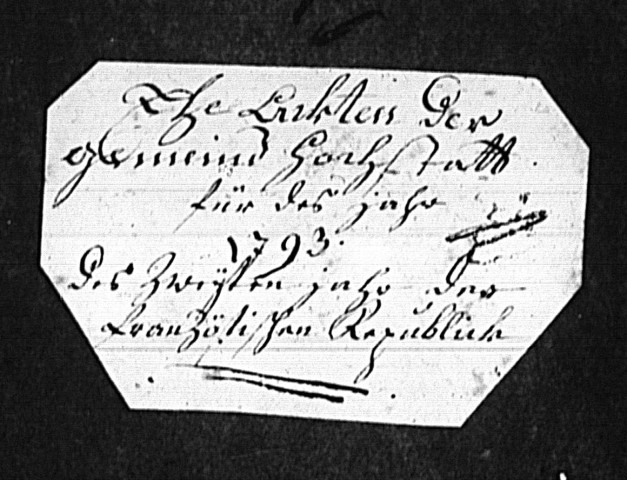 Ehe Ackten Der
gemeind Hochstatt
für des Jahr
1793.
des Zweyten Jahr der
französischen Republick